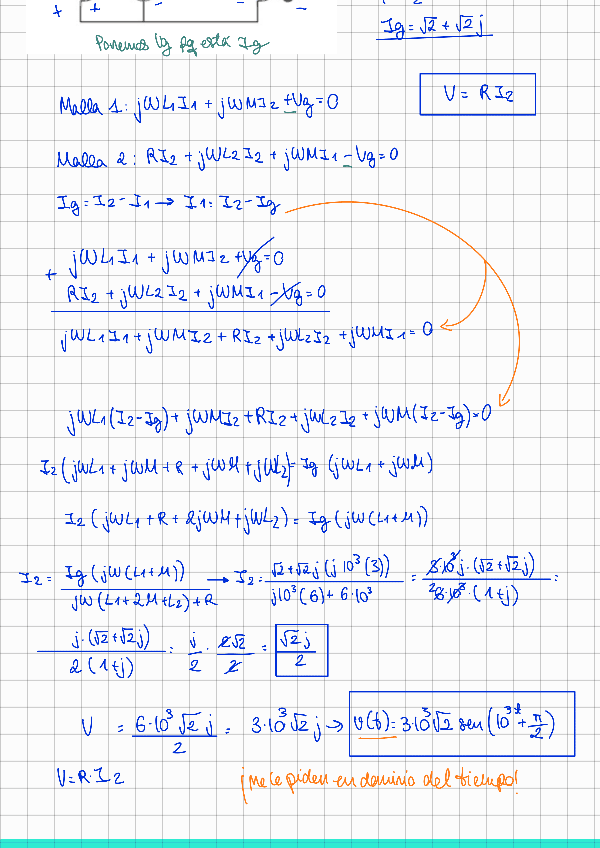 + + - - -
Ponemos Vg pq está Ig
Ig = √2 + √2 j
Malla 1: jWL1I1 + jWMI2 + Vg = 0
V = RI2
Malla 2: RI2 + jWL2I2 + jWMI1 - Vg = 0
Ig = I2 - I1 → I1 = I2 - Ig
jWL1I1 + jWMI2 + Vg = 0
+
RI2 + jWL2I2 + jWMI1 - Vg = 0
jWL1I1 + jWMI2 + RI2 + jWL2I2 + jWMI1 = 0
jWL1(I2-Ig) + jWMI2 + RI2 + jWL2I2 + jWM(I2-Ig) = 0
I2(jWL1 + jWM + R + jWM + jWL2) = Ig (jWL1 + jWM)
I2 (jWL1 + R + 2jWM + jWL2) = Ig (jW(L1+M))
I2 = Ig (jW(L1+M)) / jW(L1+2M+L2)+R → I2 = √2+√2j (j10³(3)) / j10³(6) + 6·10³ = 3·10³j·(√2+√2j) / 26·10³·(1+j) =
j·(√2+√2j) / 2(1+j) = j/2 · 2√2/2 = √2j/2
V = 6·10³√2 j / 2 = 3·10³√2 j → v(t) = 3·10³√2 sen(10³t + π/2)
V = R·I2 ¡me le piden en dominio del tiempo!